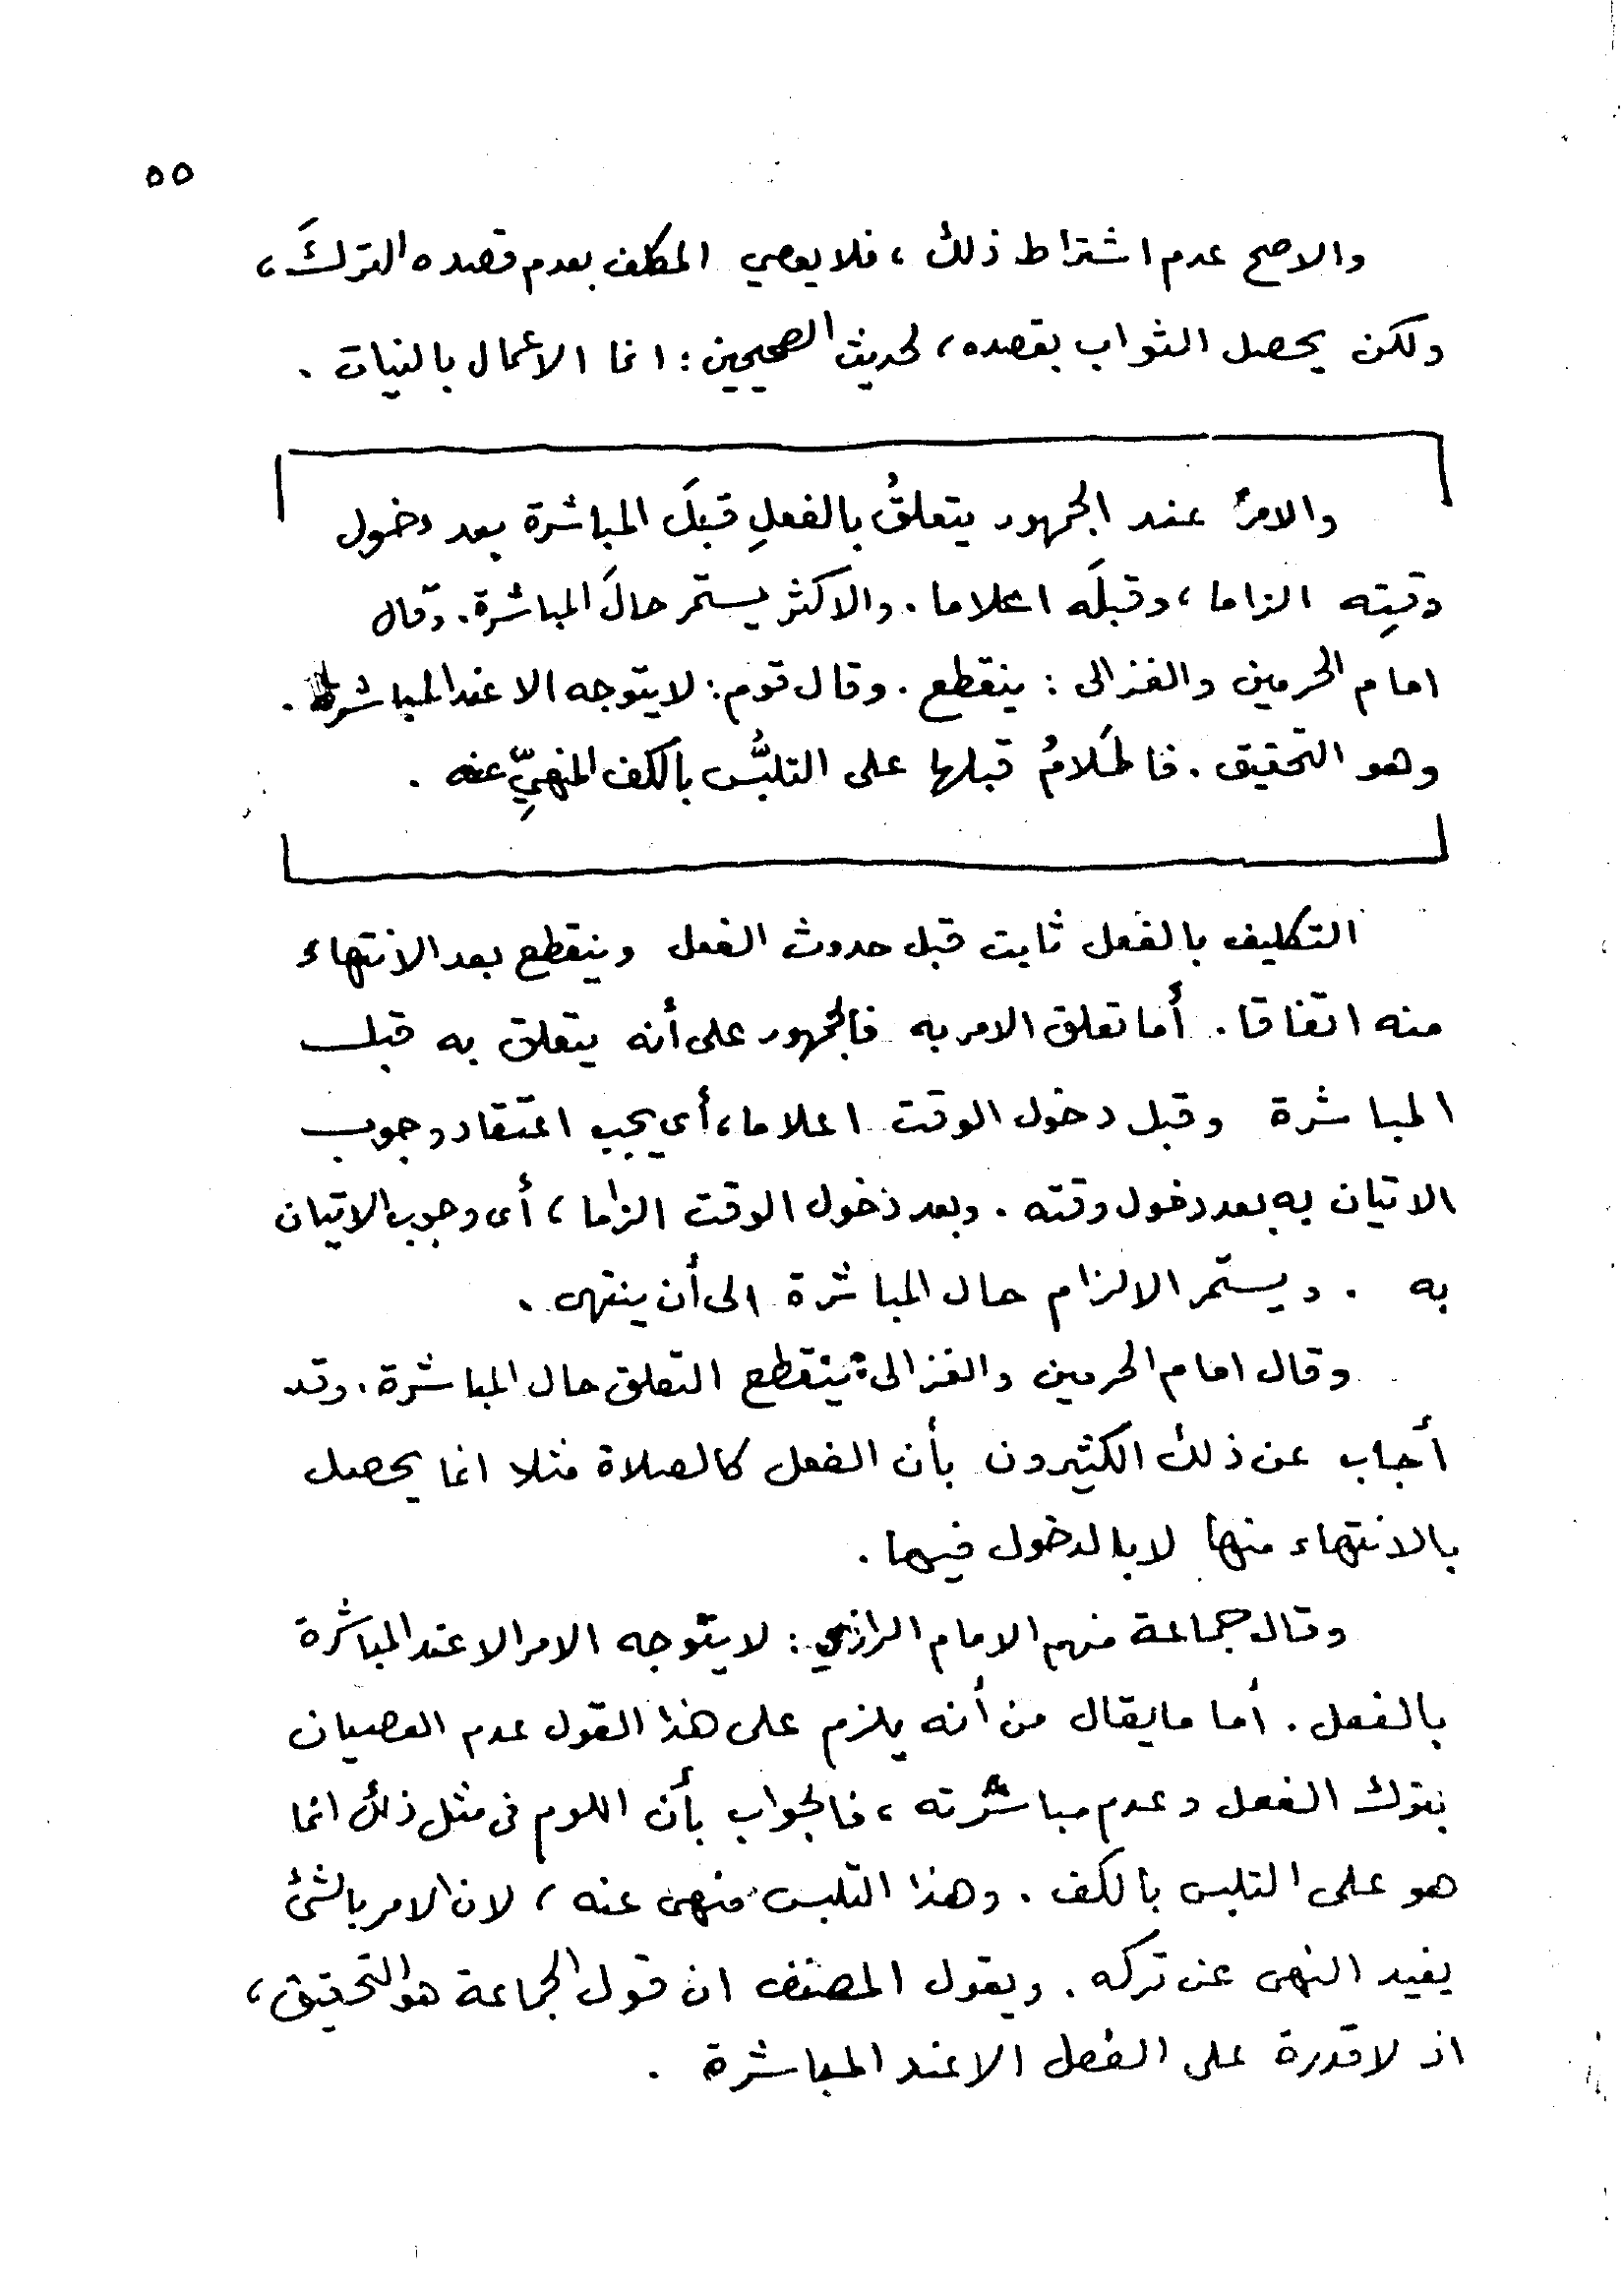 ٥٥
والاصح عدم اشتراط ذلك ، فلا يعصي المكلف بعدم قصده التركَ ،
ولكن يحصل الثواب بقصده ، لحديث الصحيحين : انما الاعمال بالنيات .
والامرُ عند الجمهور يتعلقُ بالفعلِ قبلَ المباشرة بعد دخول
وقتِه الزاما ، وقبلَه اعلاما . والاكثر يستمر حالَ المباشرة . وقال
امام الحرمين والغزالى : ينقطع . وقال قوم : لا يتوجه الا عند المباشرة .
وهو التحقيق . فالمَلامُ قبلها على التلبُّس بالكف المنهيِّ عنه .
التكليف بالفعل ثابت قبل حدوث الفعل وينقطع بعد الانتهاء
منه اتفاقا . أما تعلق الامر به فالجمهور على أنه يتعلق به قبل
المباشرة وقبل دخول الوقت اعلاما ، أى يجب اعتقاد وجوب
الاتيان به بعد دخول وقته . وبعد دخول الوقت الزاما ، أى وجوب الاتيان
به . ويستمر الالزام حال المباشرة الى أن ينتهى .
وقال امام الحرمين والغزالى : ينقطع التعلق حال المباشرة . وقد
أجاب عن ذلك الكثيرون بأن الفعل كالصلاة مثلا انما يحصل
بالانتهاء منها لا بالدخول فيها .
وقال جماعة منهم الامام الرازي : لا يتوجه الامر الا عند المباشرة
بالفعل . أما ما يقال من أنه يلزم على هذا القول عدم العصيان
بترك الفعل وعدم مباشرته ، فالجواب بأن اللوم فى مثل ذلك انما
هو على التلبس بالكف . وهذا التلبس منهى عنه ، لان الامر بالشئ
يفيد النهى عن تركه . ويقول المصنف ان قول الجماعة هو التحقيق ،
اذ لا قدرة على الفعل الا عند المباشرة .